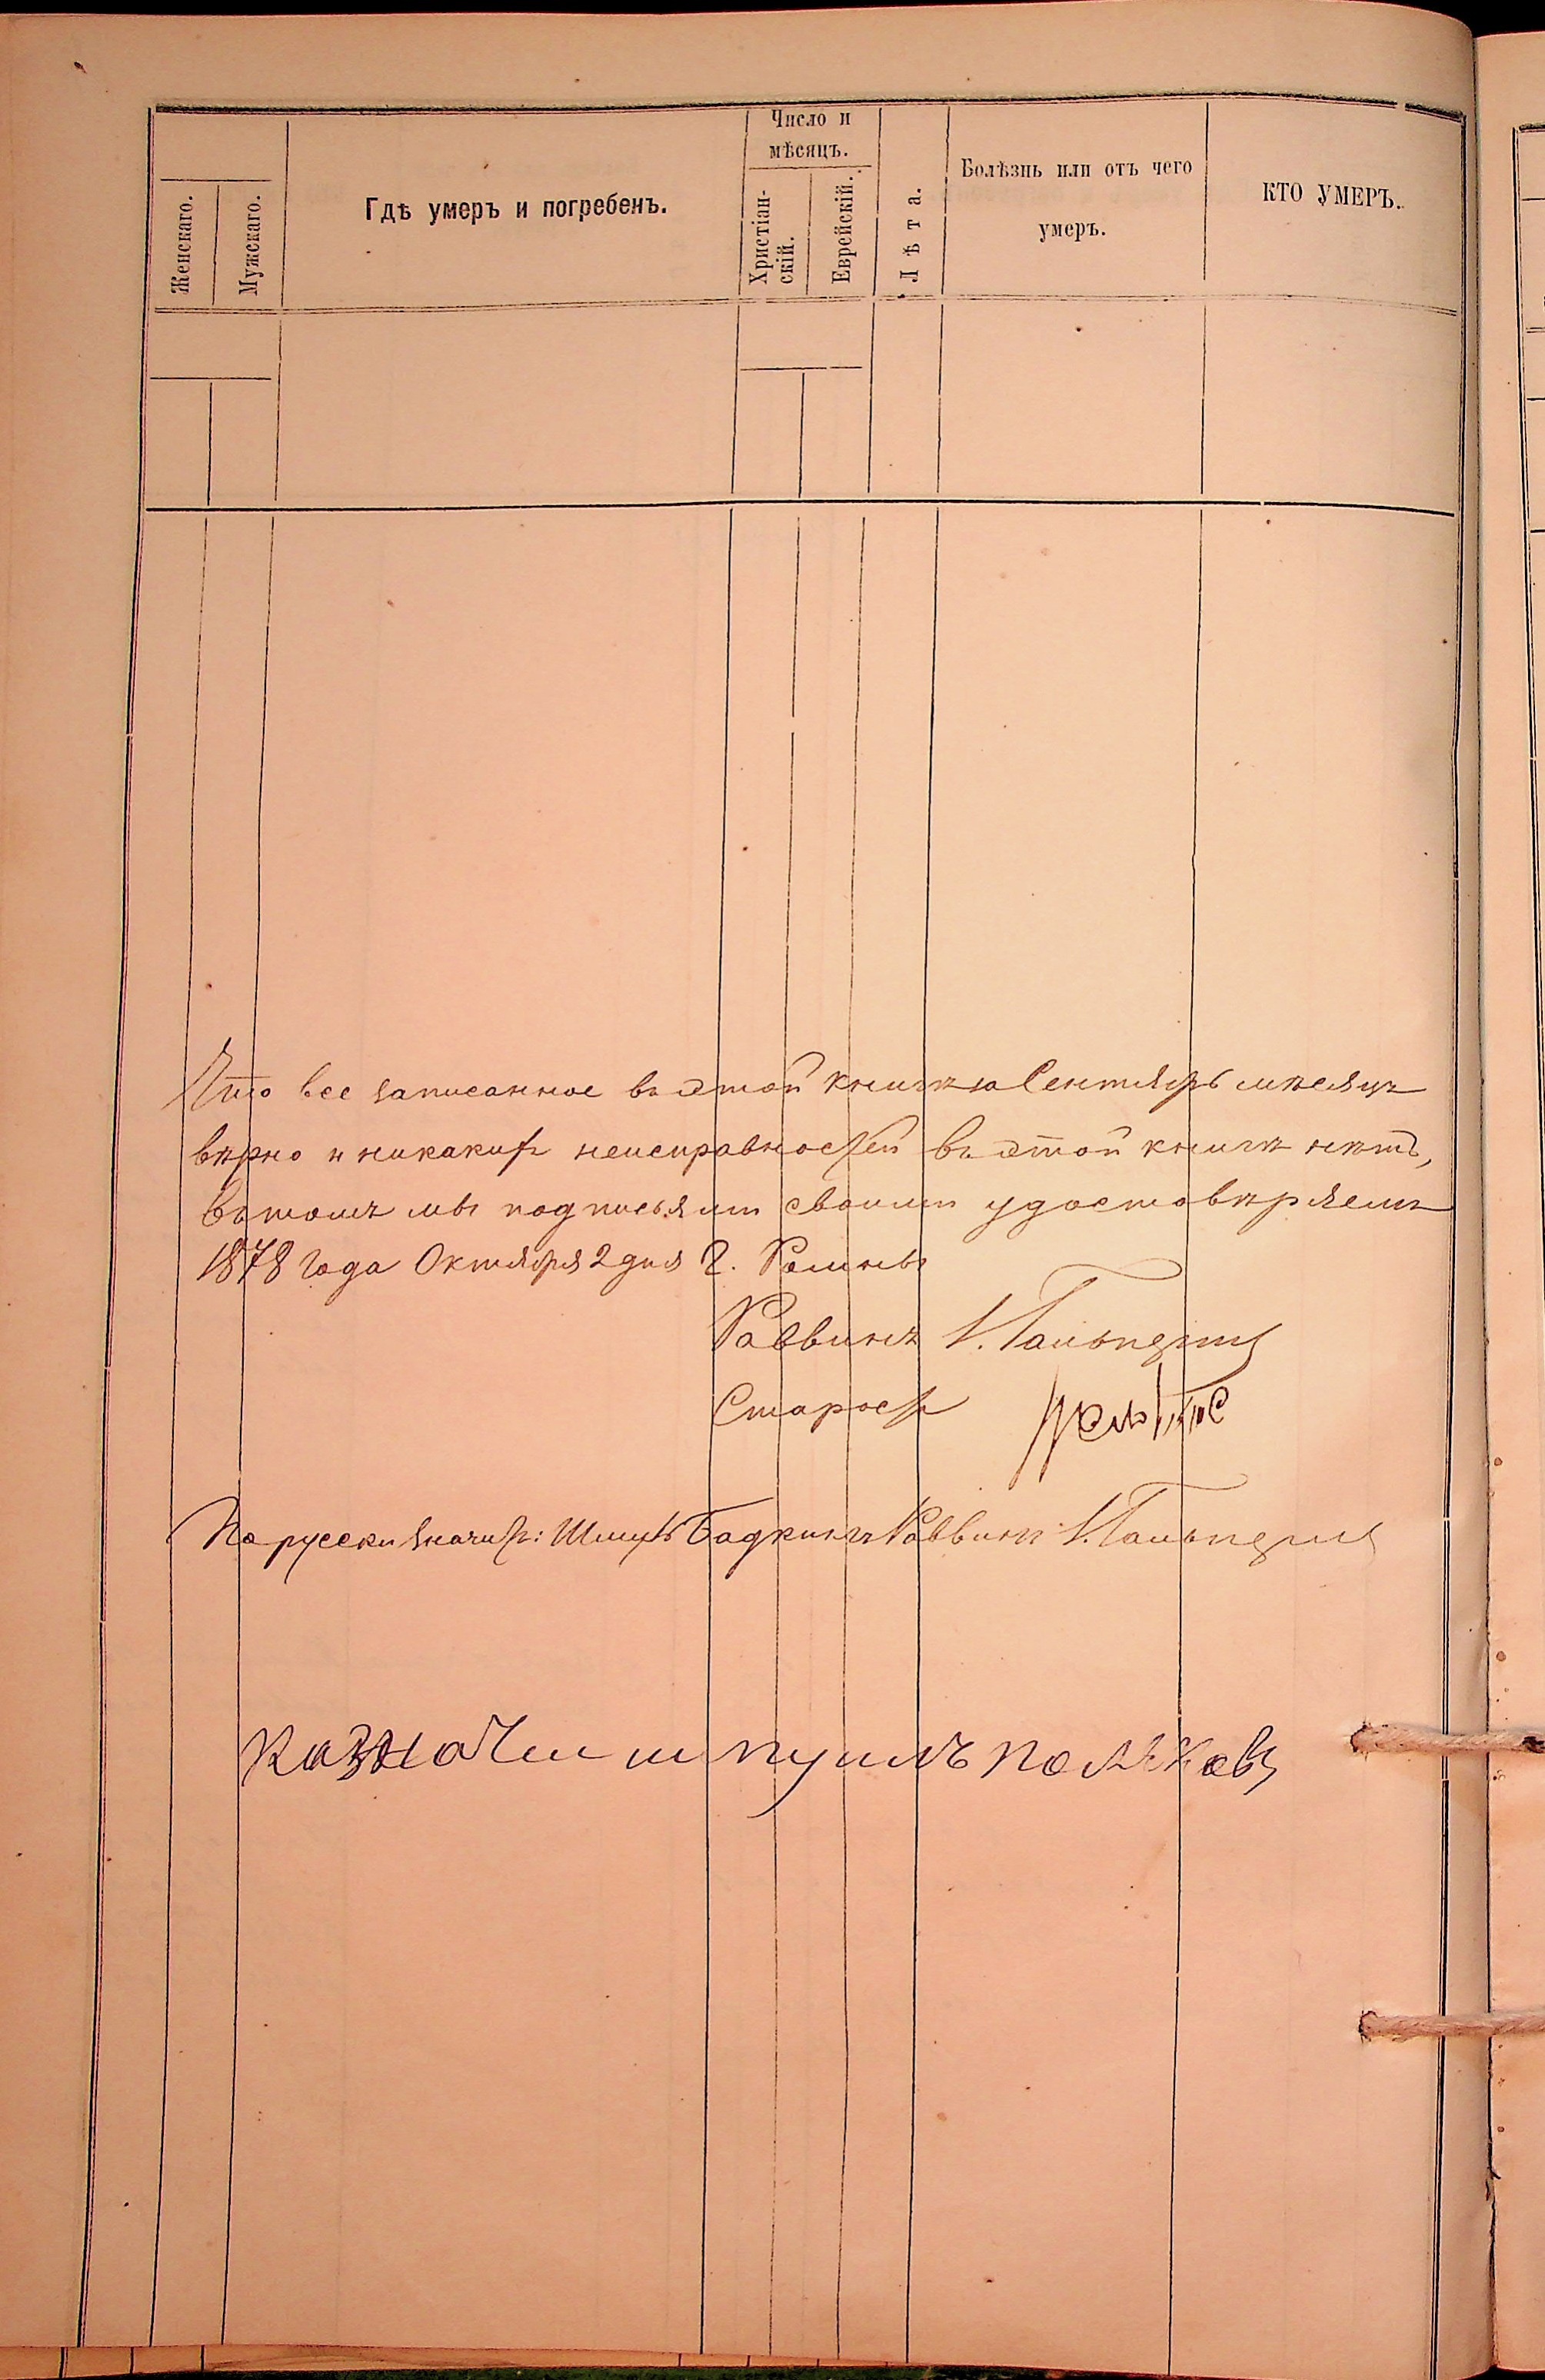 Число и
мѣсяцъ.
Женскаго.
Мужскаго.
Гдѣ умеръ и погребенъ.
Христіан-
скій.
Еврейскій.
Лѣта.
Болѣзнь или отъ чего
умеръ.
КТО УМЕРЪ.
Что все записанное въ этой книгѣ за Сентябрь мѣсяцъ
вѣрно и никакихъ неисправностей въ этой книгѣ нѣтъ,
въ томъ мы подписями своими удостовѣряемъ
1878 года Октября 2 дня г. Ромны
Раввинъ И. Гальперинъ
Староста
По русски значитъ: Раввинъ И. Гальперинъ
казначеи поляковъ